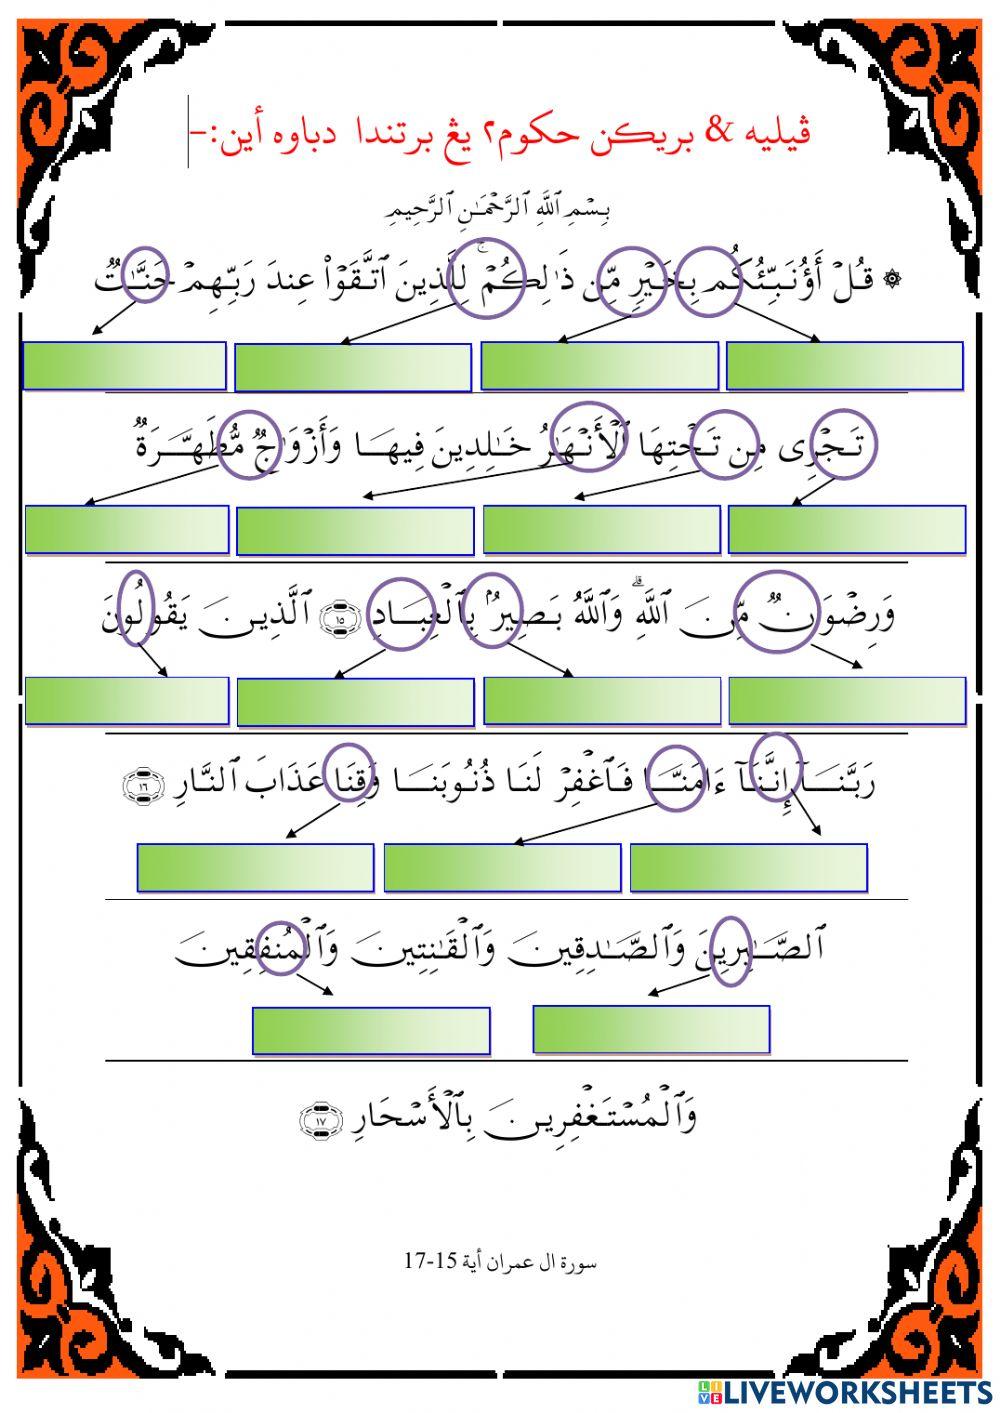 ڤيليه & بريکن حکوم٢ يڠ برتندا دباوه أين:-
بِسْمِ ٱللَّهِ ٱلرَّحْمَٰنِ ٱلرَّحِيمِ
۞ قُلْ أَؤُنَبِّئُكُم بِخَيْرٍ مِّن ذَٰلِكُمْ ۚ لِلَّذِينَ ٱتَّقَوْا۟ عِندَ رَبِّهِمْ جَنَّٰتٌ
تَجْرِى مِن تَحْتِهَا ٱلْأَنْهَٰرُ خَٰلِدِينَ فِيهَا وَأَزْوَٰجٌ مُّطَهَّرَةٌ
وَرِضْوَٰنٌ مِّنَ ٱللَّهِ ۗ وَٱللَّهُ بَصِيرٌۢ بِٱلْعِبَادِ ١٥ ٱلَّذِينَ يَقُولُونَ
رَبَّنَآ إِنَّنَآ ءَامَنَّا فَٱغْفِرْ لَنَا ذُنُوبَنَا وَقِنَا عَذَابَ ٱلنَّارِ ١٦
ٱلصَّٰبِرِينَ وَٱلصَّٰدِقِينَ وَٱلْقَٰنِتِينَ وَٱلْمُنفِقِينَ
وَٱلْمُسْتَغْفِرِينَ بِٱلْأَسْحَارِ ١٧
سورة ال عمران أية 15-17
LIVEWORKSHEETS